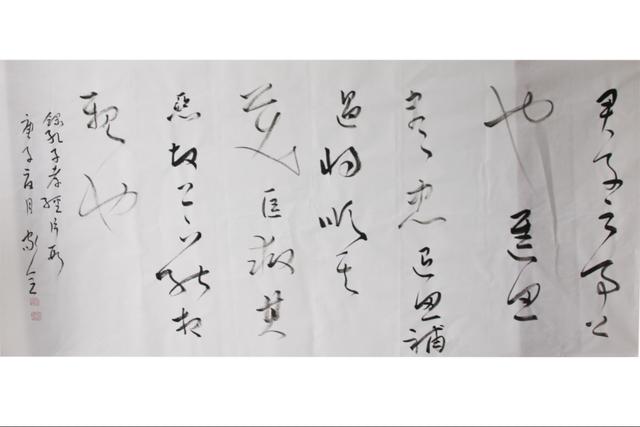 君子之事上
也進思
盡忠退思補
過將順其
美匡救其
惡故上下能相
親也
錄孔子孝經片段
庚子夏月家全